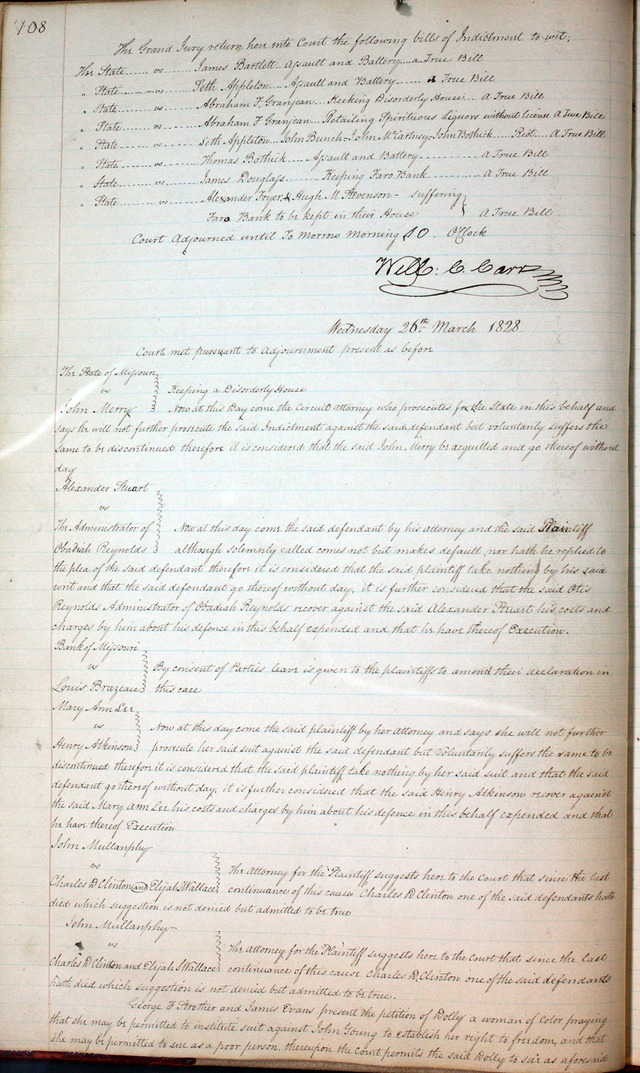 108
The Grand Jury return here into Court the following bills of Indictment to wit;
The State ...... vs ...... James Bartlett Assault and Battery a True Bill
" State ...... vs ...... Seth Appleton Assault and Battery ...... a True Bill
" State ...... vs ...... Abraham F. Granjean ... Keeking Disorderly House. A True Bill
" State ...... vs ...... Abraham F Granjean Retailing Spirituous Liquors without license A True Bill
" State ...... vs ...... Seth Appleton John Bunch John McCartney John Bothick Riot ... A True Bill
" State ...... vs ...... Thomas Bothick ... Assault and Battery ...... A True Bill
" State ...... vs ...... James Douglass ... Keeping Faro Bank ...... A True Bill
" State ...... vs ...... Alexander Fryer & Hugh M Stevenson - suffering
Faro Bank to be kept in their House } A True Bill
Court Adjourned until To Morrow Morning 10 O'Clock
Will: C. Carr
Wednesday 26th March 1828
Court met pursuant to Adjournment present as before
The State of Missouri
vs Keeping a Disorderly House
John Merry Now at this Day come the Circuit attorney who prosecutes for the State in this behalf and
says he will not further prosecute the said Indictment against the said defendant but voluntarily suffers the
same to be discontinued therefore it is considered that the said John Merry be acquitted and go thereof without
day
Alexander Stuart
vs
The Administrator of Now at this day come the said defendant by his attorney and the said Plaintiff
Obadiah Reynolds although solemnly called comes not but makes default, nor hath he replied to
the plea of the said defendant therefore it is considered that the said plaintiff take nothing by his said
writ and that the said defendant go thereof without day, it is further considered that the said Otis
Reynolds Administrator of Obadiah Reynolds recover against the said Alexander Stuart his costs and
charges by him about his defence in this behalf expended and that he have thereof Execution.
Bank of Missouri
vs By consent of Parties leave is given to the plaintiffs to amend their declaration in
Louis Brazeau this case
Mary Ann Lee
vs Now at this day come the said plaintiff by her Attorney and says she will not further
Henry Atkinson prosecute her said suit against the said defendant but voluntarily suffers the same to be
discontinued therefore it is considered that the said plaintiff take nothing by her said suit and that the said
defendant go thereof without day, it is further considered that the said Henry Atkinson recover against
the said Mary Ann Lee his costs and charges by him about his defence in this behalf expended and that
he have thereof Execution
John Mullanphy
vs The Attorney for the Plaintiff suggests here to the Court that since the last
Charles D. Clinton and Elijah Wallace continuance of this cause Charles D Clinton one of the said defendants hath
died which suggestion is not denied but admitted to be true
John Mullanphy
vs The attorney for the Plaintiff suggests here to the Court that since the last
Charles D. Clinton and Elijah S Wallace continuance of this cause Charles D. Clinton one of the said defendants
hath died which suggestion is not denied but admitted to be true.
George F Strother and James Evans present the petition of Dolly a woman of color, praying
that she may be permitted to institute suit against John Young to establish her right to freedom, and that
she may be permitted to sue as a poor person, thereupon the Court permits the said Dolly to sue as aforesaid